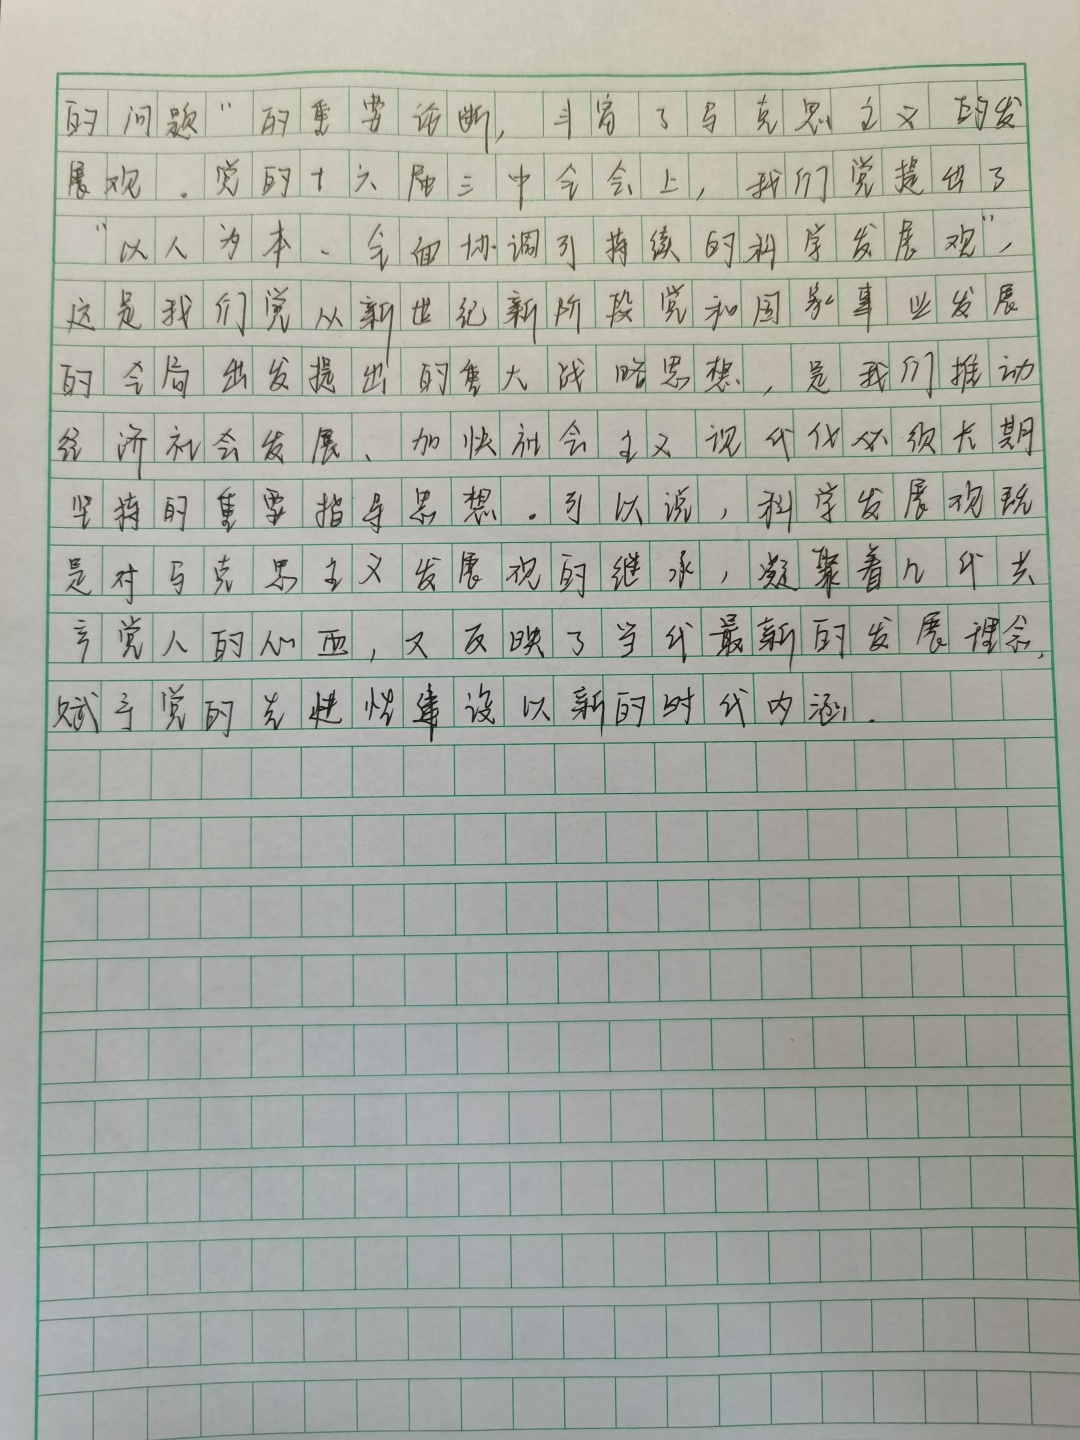 的问题”的重要论断，丰富了马克思主义的发
展观。党的十六届三中全会上，我们党提出了
“以人为本、全面协调可持续的科学发展观”，
这是我们党从新世纪新阶段党和国家事业发展
的全局出发提出的重大战略思想，是我们推动
经济社会发展、加快社会主义现代化必须长期
坚持的重要指导思想。可以说，科学发展观既
是对马克思主义发展观的继承，凝聚着几代共
产党人的心血，又反映了当代最新的发展理念，
赋予党的先进性建设以新的时代内涵。